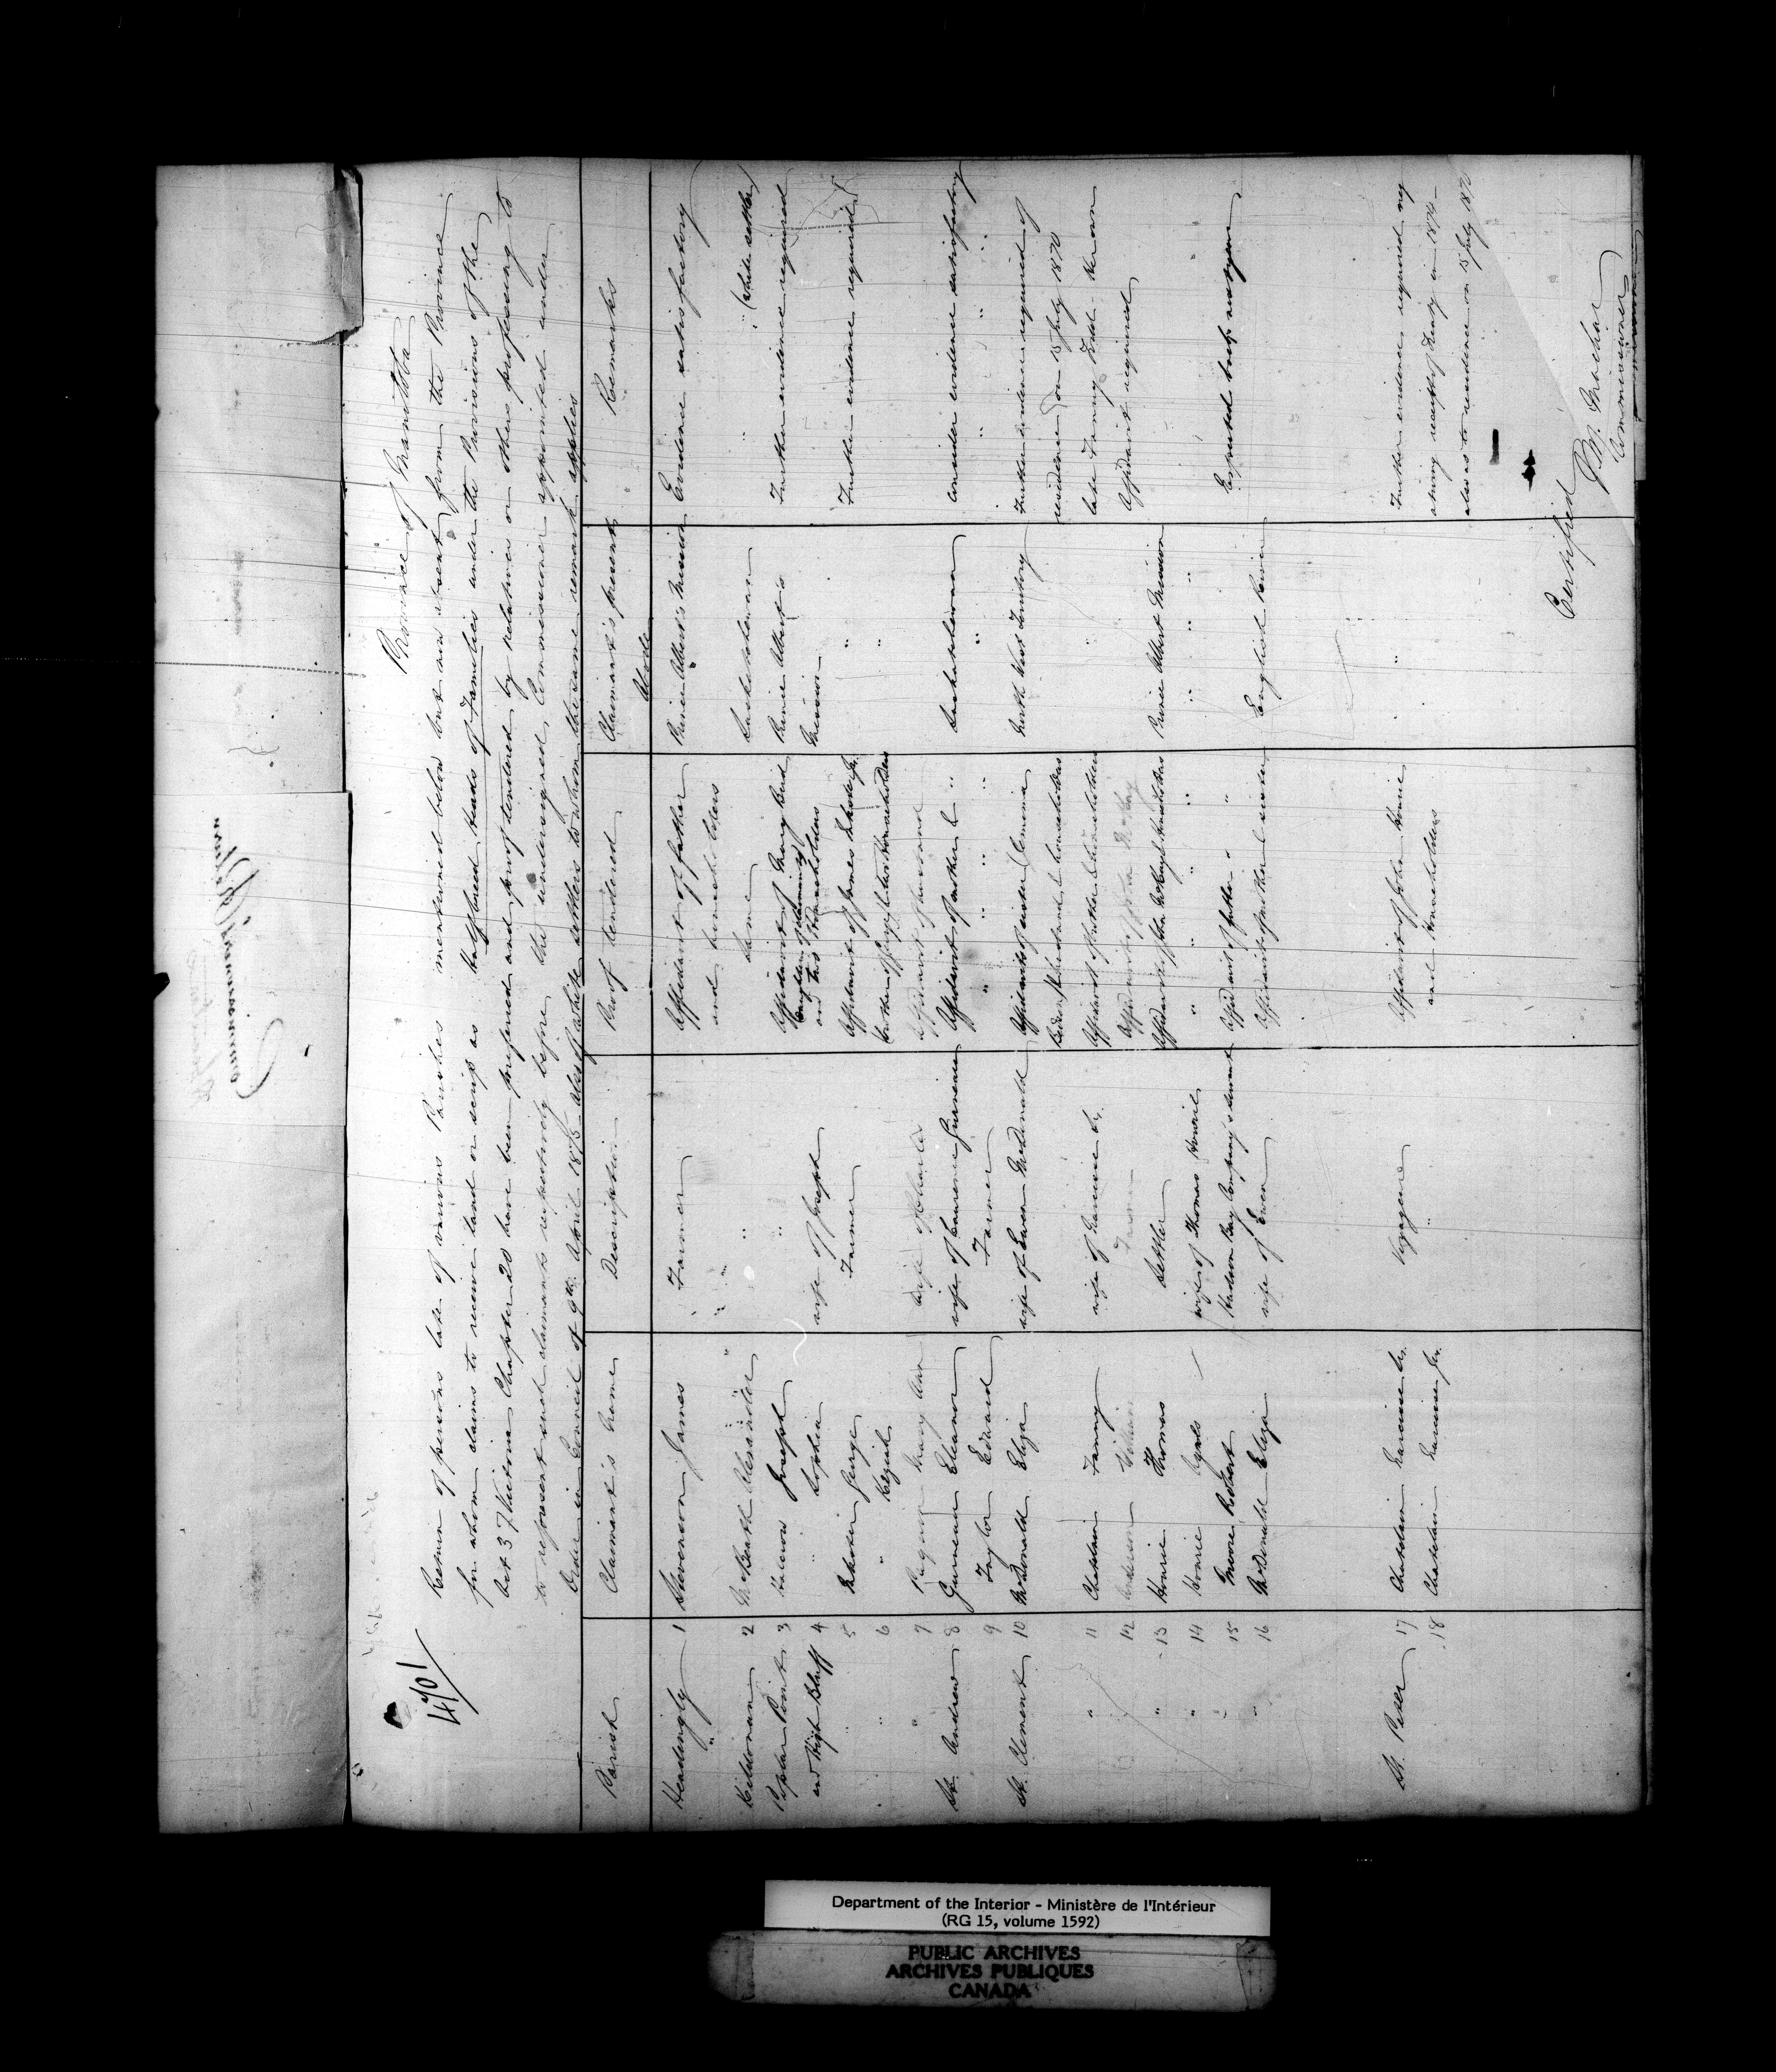 Province of Manitoba
4701
Return of persons late of various Parishes mentioned below but now absent from the Province
for whom claims to receive land or scrip as half breed heads of Families under the Provisions of the
Act 37 Victoria Chapter 20 have been preferred and proof tendered by relatives or others proposing to
represent such claimants respectively before the undersigned, Commissioner appointed under
Order in Council of 9th April 1875 also of white settlers to whom the same remark applies
Parish Claimant's Name Description Proof tendered Claimant's present Abode Remarks
Headingly 1 Stevenson James Farmer Affidavit of father and householders Prince Albert's Mission Evidence satisfactory
Kildonan 2 McBeath Alexander " Same Saskatchewan " " (white settler)
Poplar Point 3 Joseph " Affidavit of and two Householders Prince Albert's Mission Further evidence required
and High Bluff 4 " Sophia wife of Joseph
" 5 George Farmer Affidavit of James " Further evidence required
" 6 " wife "
" 7 Mary Ann wife of Charles Affidavit of husband
St. Andrew 8 Gurneau Eleanor wife of Lawrence Gurneau Affidavit of brother Saskatchewan Consider evidence satisfactory
9 Taylor Edward Farmer " " " " " " " "
St. Clement 10 McDonald Eliza wife of Ewen McDonald Affidavits of sister householders North West Territory Further evidence required of
residence on 15 July 1870
" 11 Chatelain Fanny wife of Narcisse Sr. Affidavit of brother & householders " late Fanny
12 Anderson William Farmer Affidavit of McKay " Affidavit required
" 13 Hourie Thomas Settler Affidavit of John McKay & householders Prince Albert Mission
" 14 Hourie Agnes wife of Thomas Hourie " " " " " " "
" 15 Moore Robert Hudson Bay Company's servant Affidavit of father " " " "
" 16 McDonald Eliza wife of Ewen Affidavit of mother & sister English River
St. Peter 17 Chatelain Narcisse Sr. Voyageur Affidavit of John Hourie and Householders " Further evidence required
receipt of Treaty in 1874
18 Chatelain Narcisse Jr. " also as to residence on 15 July 1870
Certified
J. M. Machar
Commissioner
Department of the Interior - Ministère de l'Intérieur
(RG 15, volume 1592)
PUBLIC ARCHIVES
ARCHIVES PUBLIQUES
CANADA